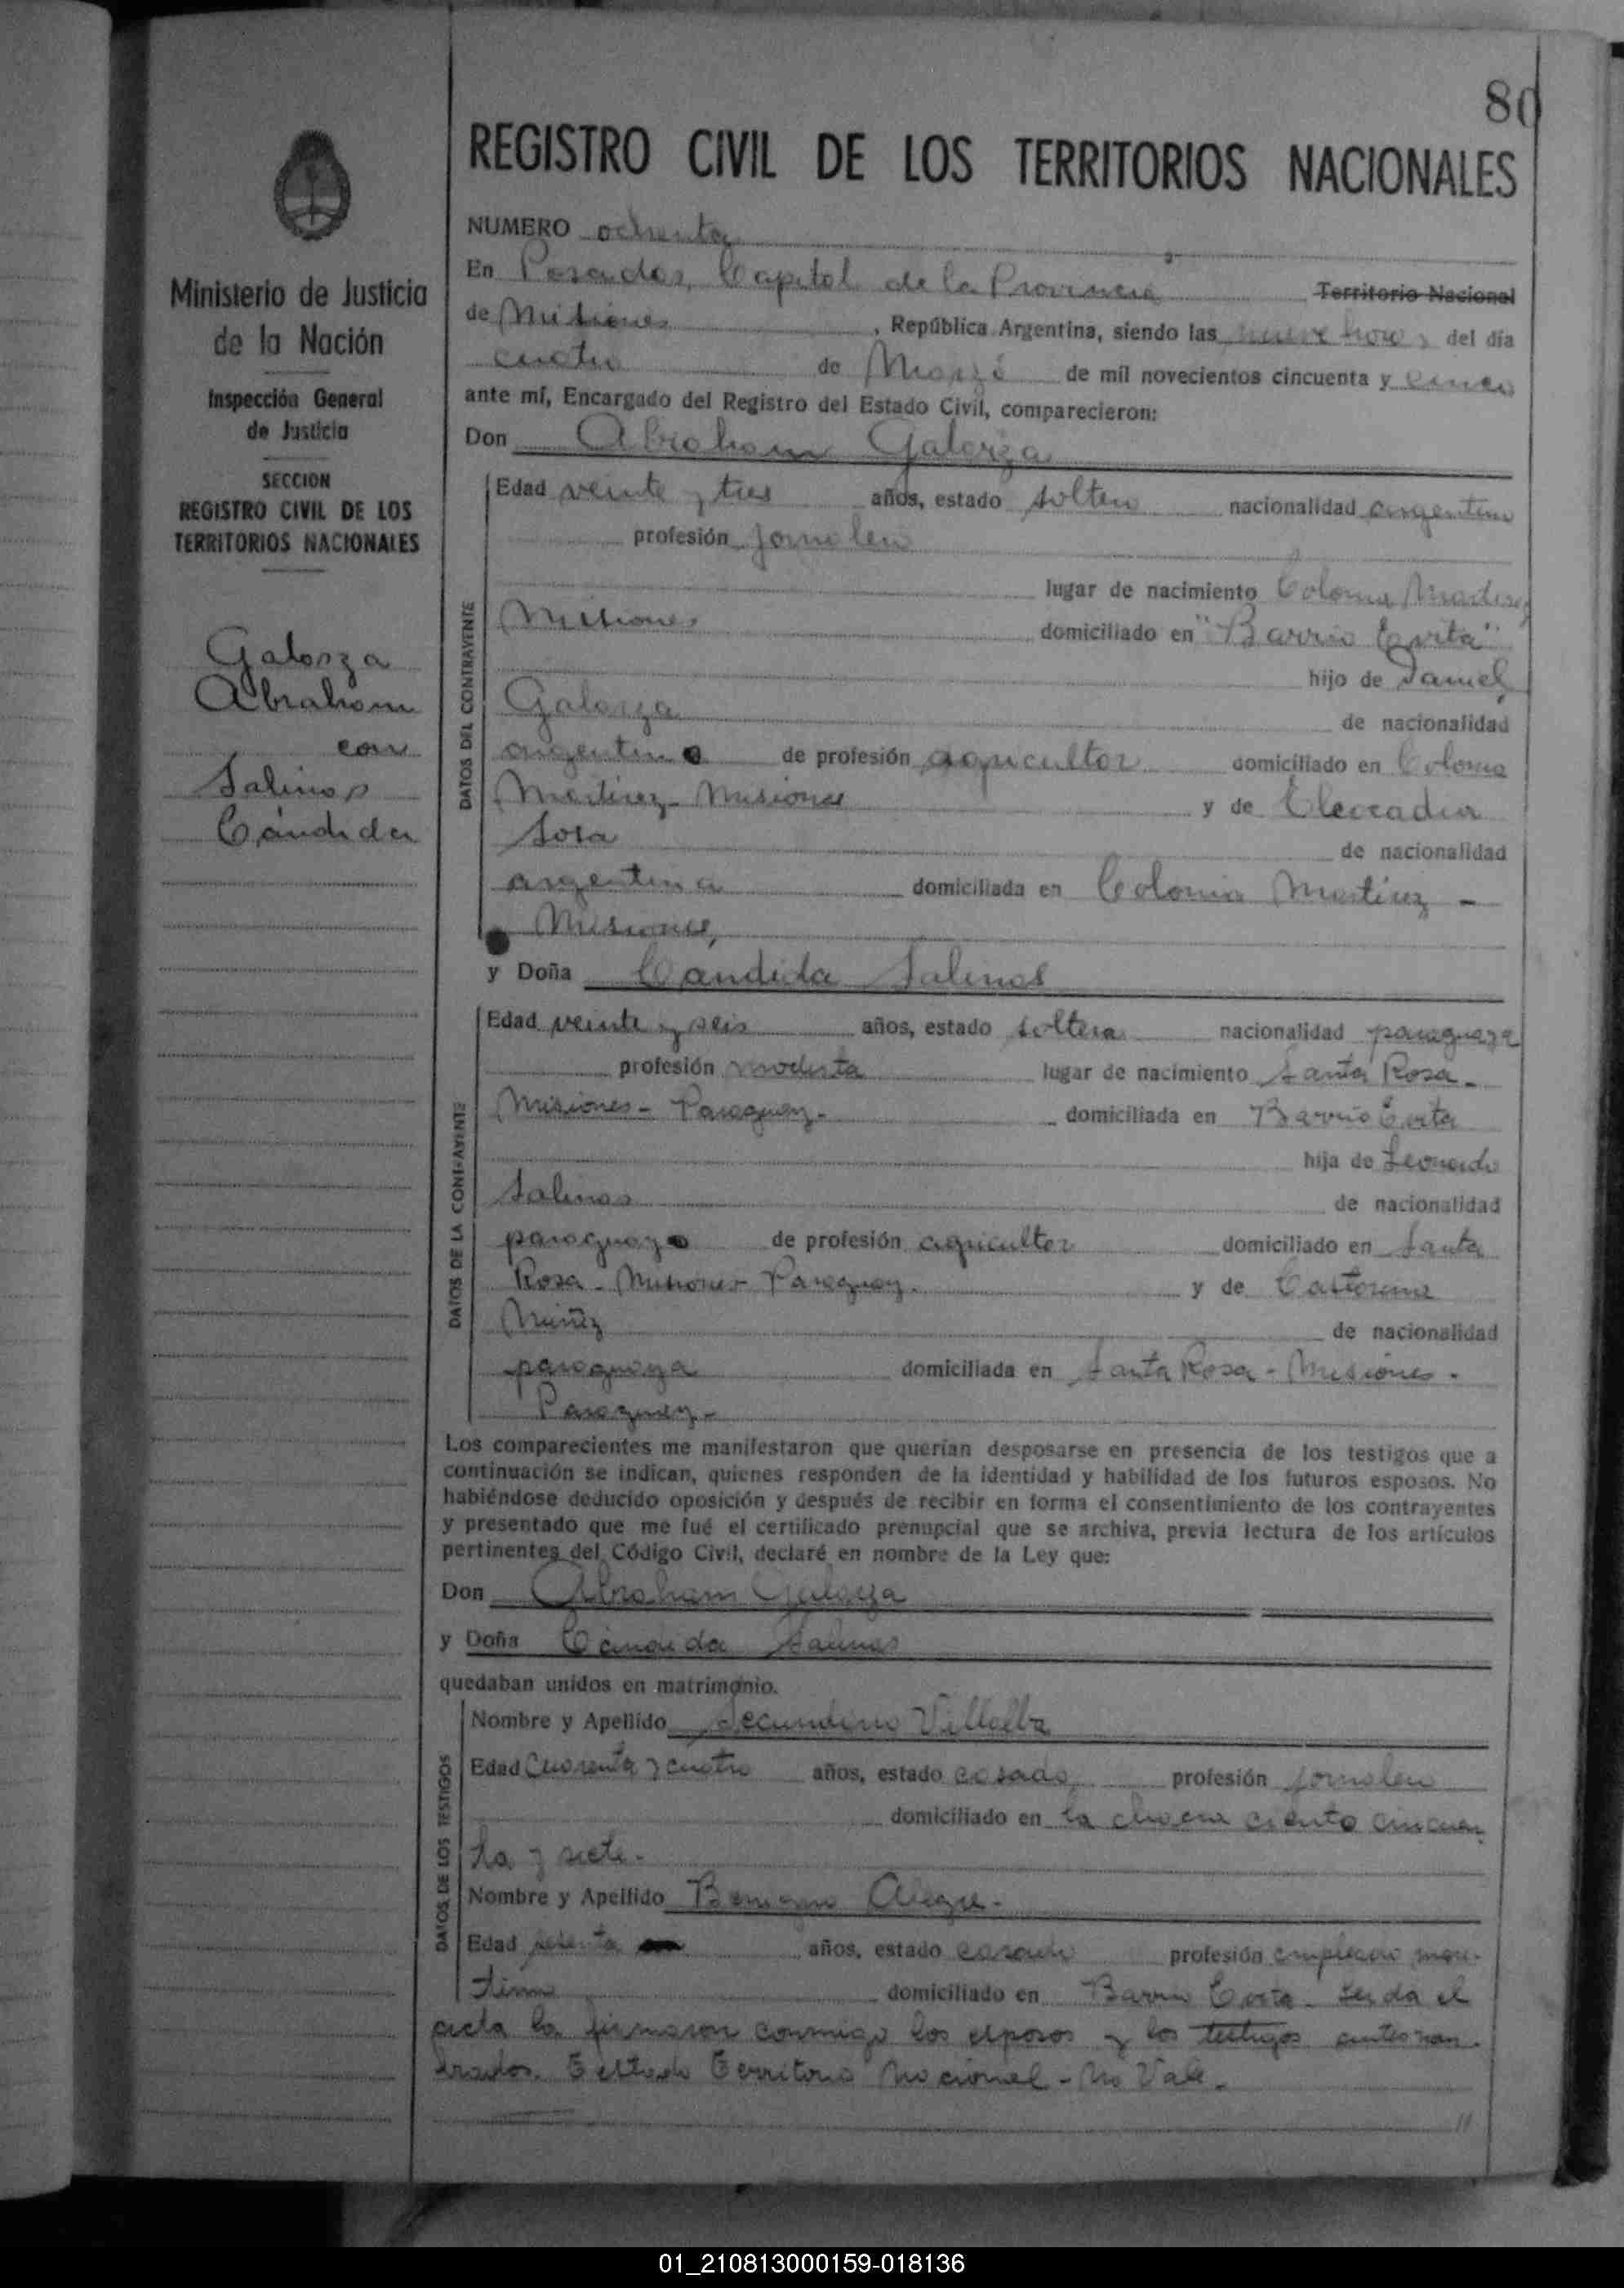 80
REGISTRO CIVIL DE LOS TERRITORIOS NACIONALES
Ministerio de Justicia
de la Nación
Inspección General
de Justicia
SECCION
REGISTRO CIVIL DE LOS
TERRITORIOS NACIONALES
Galarza
Abraham
con
Salinas
Cándida
NUMERO ochenta
En Posadas, Capital de la Provincia Territorio Nacional
de Misiones, República Argentina, siendo las nueve horas del día
cuatro de Marzo de mil novecientos cincuenta y cinco
ante mí, Encargado del Registro del Estado Civil, comparecieron:
Don Abraham Galarza
DATOS DEL CONTRAYENTE
Edad veinte y tres años, estado soltero nacionalidad argentino
profesión jornalero
lugar de nacimiento Colonia Martirez
Misiones domiciliado en "Barrio Evita"
hijo de Daniel
Galarza de nacionalidad
argentino de profesión agricultor domiciliado en Colonia
Martirez - Misiones y de Cleocadia
Sosa de nacionalidad
argentina domiciliada en Colonia Martirez -
Misiones,
y Doña Candida Salinas
DATOS DE LA CONTRAYENTE
Edad veinte y seis años, estado soltera nacionalidad paraguaya
profesión modista lugar de nacimiento Santa Rosa -
Misiones - Paraguay - domiciliada en Barrio Evita
hija de Leonardo
Salinas de nacionalidad
paraguayo de profesión agricultor domiciliado en Santa
Rosa - Misiones - Paraguay. y de Castorina
Nuñez de nacionalidad
paraguaya domiciliada en Santa Rosa - Misiones -
Paraguay -
Los comparecientes me manifestaron que querían desposarse en presencia de los testigos que a
continuación se indican, quienes responden de la identidad y habilidad de los futuros esposos. No
habiéndose deducido oposición y después de recibir en forma el consentimiento de los contrayentes
y presentado que me fué el certificado prenupcial que se archiva, previa lectura de los artículos
pertinentes del Código Civil, declaré en nombre de la Ley que:
Don Abraham Galarza
y Doña Cándida Salinas
quedaban unidos en matrimonio.
DATOS DE LOS TESTIGOS
Nombre y Apellido Secundino Villalba
Edad Cuarenta y cuatro años, estado casado, profesión jornalero
domiciliado en la chacra ciento cincuen
ta y siete -
Nombre y Apellido Benigno Alegre -
Edad años, estado casado profesión empleado marí-
timo domiciliado en Barrio Evita. Leida el
acta la firmaron conmigo los esposos y los testigos antes nom-
brados. Testado Territorio Nacional - No Vale -
01_210813000159-018136